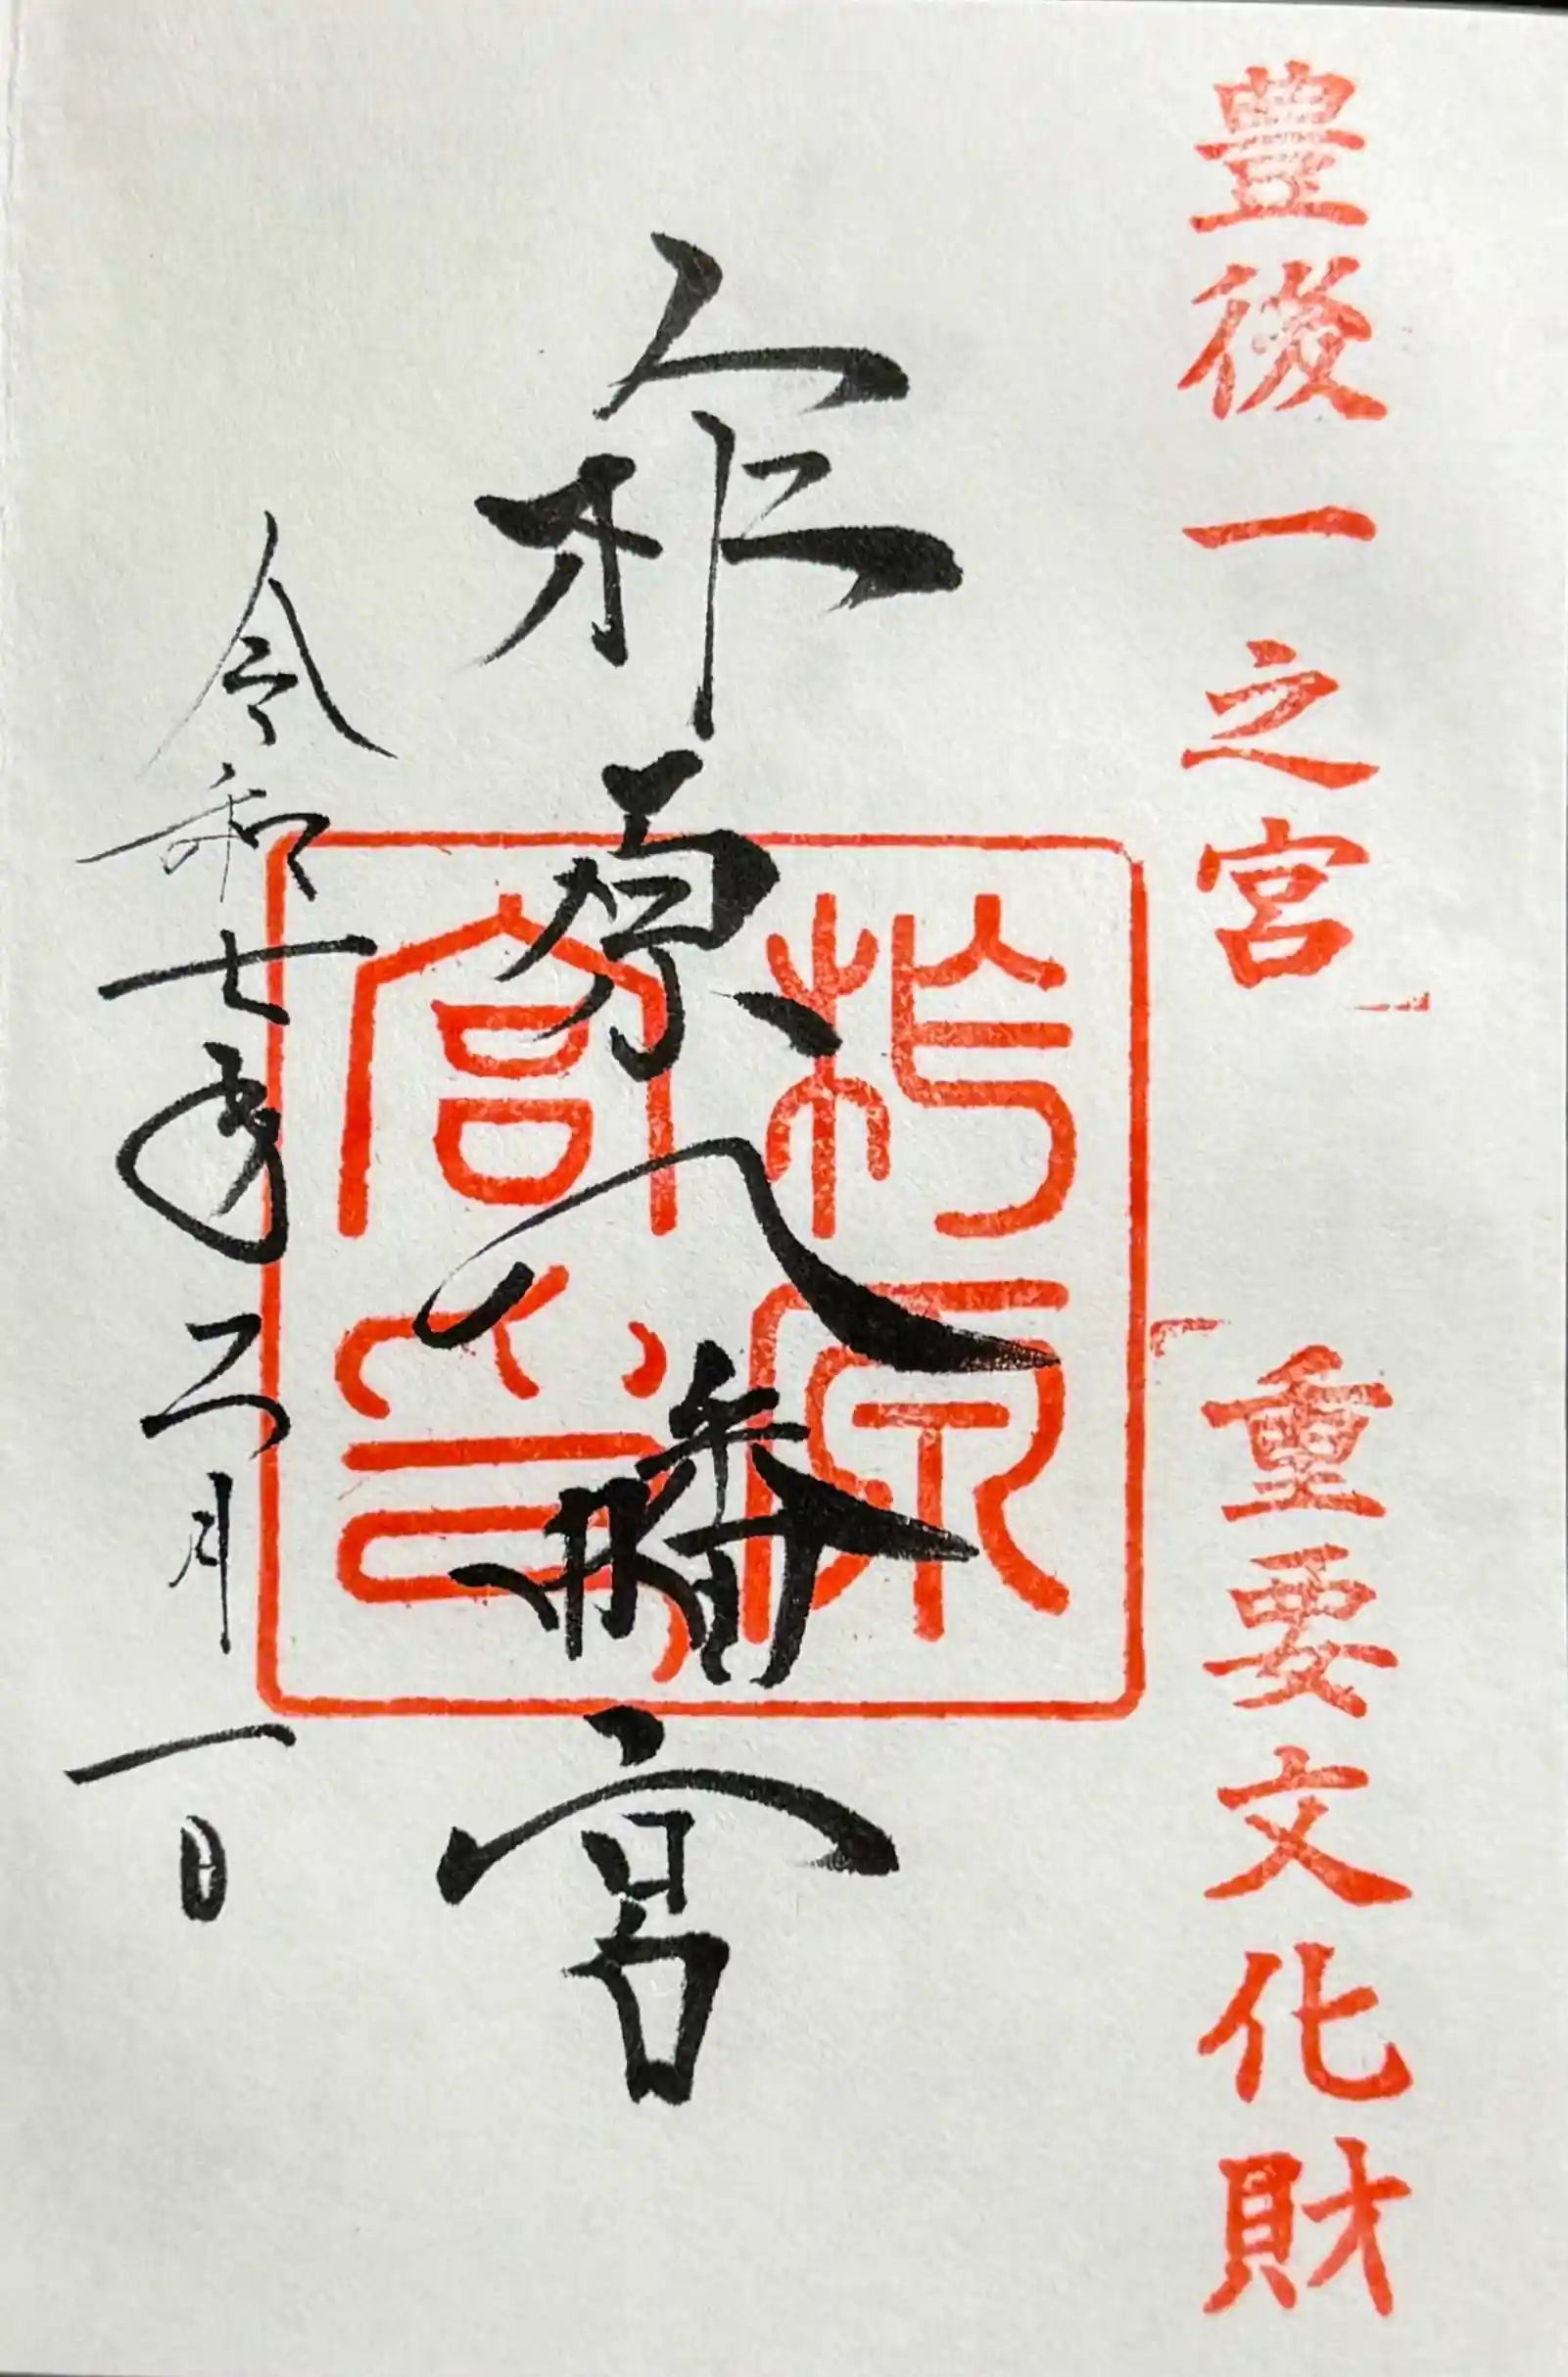 豊後一之宮
重要文化財
柞原八幡宮
柞原
宮印
令和七年二月一日